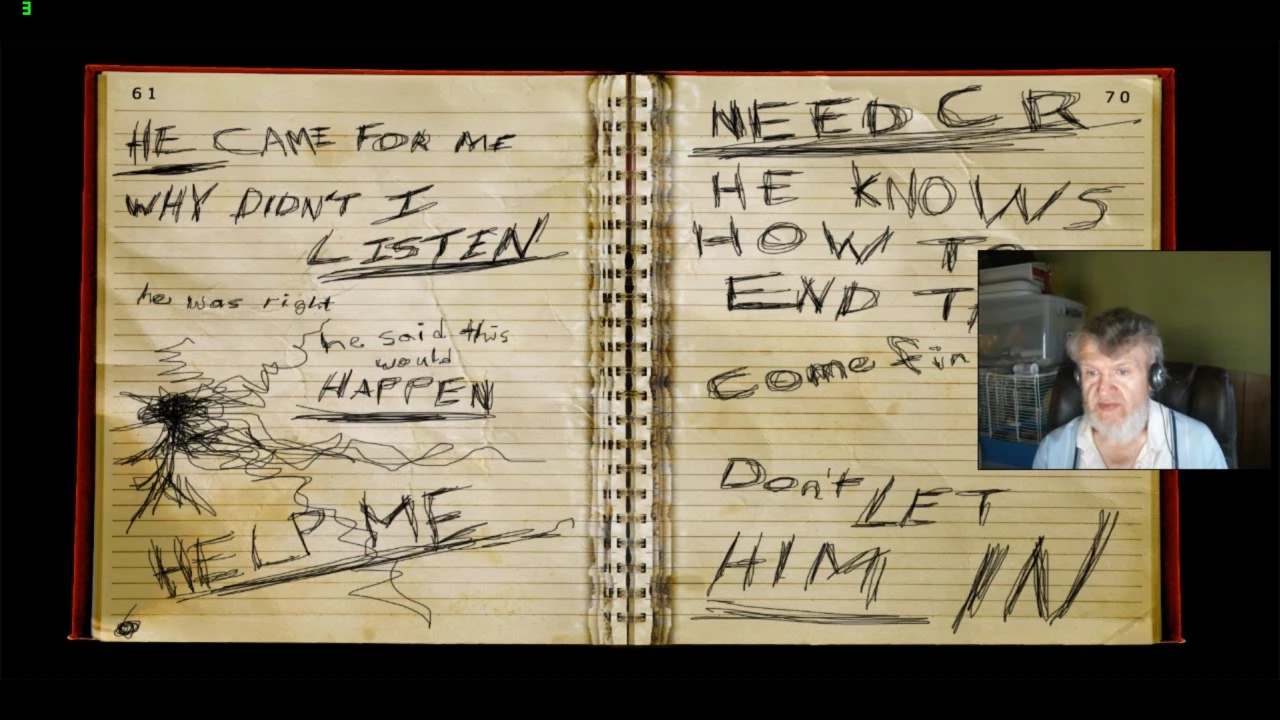 3
61
HE CAME FOR ME
WHY DIDN'T I
LISTEN
he was right
he said this
would
HAPPEN
HELP ME
70
NEED CR
HE KNOWS
HOW TO
END
come
Don't LET
HIM IN